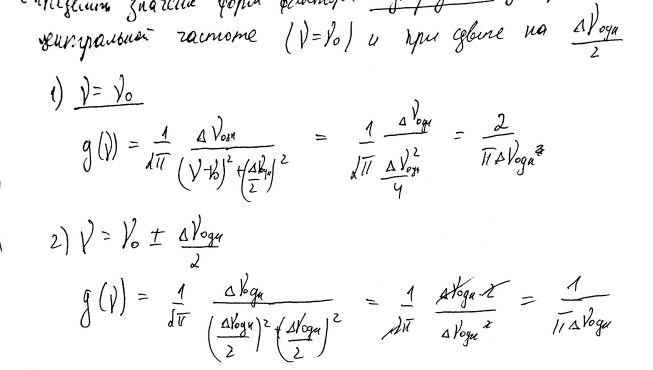 значение форм фактора
центральной частоте (ν=ν₀) и при сдвиге на Δν_одн/2
1) ν = ν₀
g(ν) = 1/2π Δν_одн/((ν-ν₀)²+(Δν_одн/2)²) = 1/2π Δν_одн/(Δν_одн²/4) = 2/πΔν_одн
2) ν = ν₀ ± Δν_одн/2
g(ν) = 1/2π Δν_одн/((Δν_одн/2)²+(Δν_одн/2)²) = 1/2π Δν_одн·2/Δν_одн² = 1/πΔν_одн